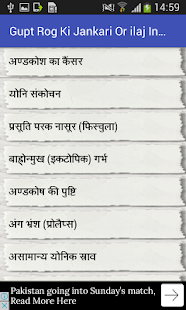 14:59
Gupt Rog Ki Jankari Or ilaj In...
अण्डकोश का कैंसर
योनि संकोचन
प्रसूति परक नासूर (फिस्चुला)
बाह्रोन्मुख (इकटोपिक) गर्भ
अण्डकोष की पुष्टि
अंग भ्रंश (प्रोलैप्स)
असामान्य योनिक स्राव
Pakistan going into Sunday's match,
Read More Here